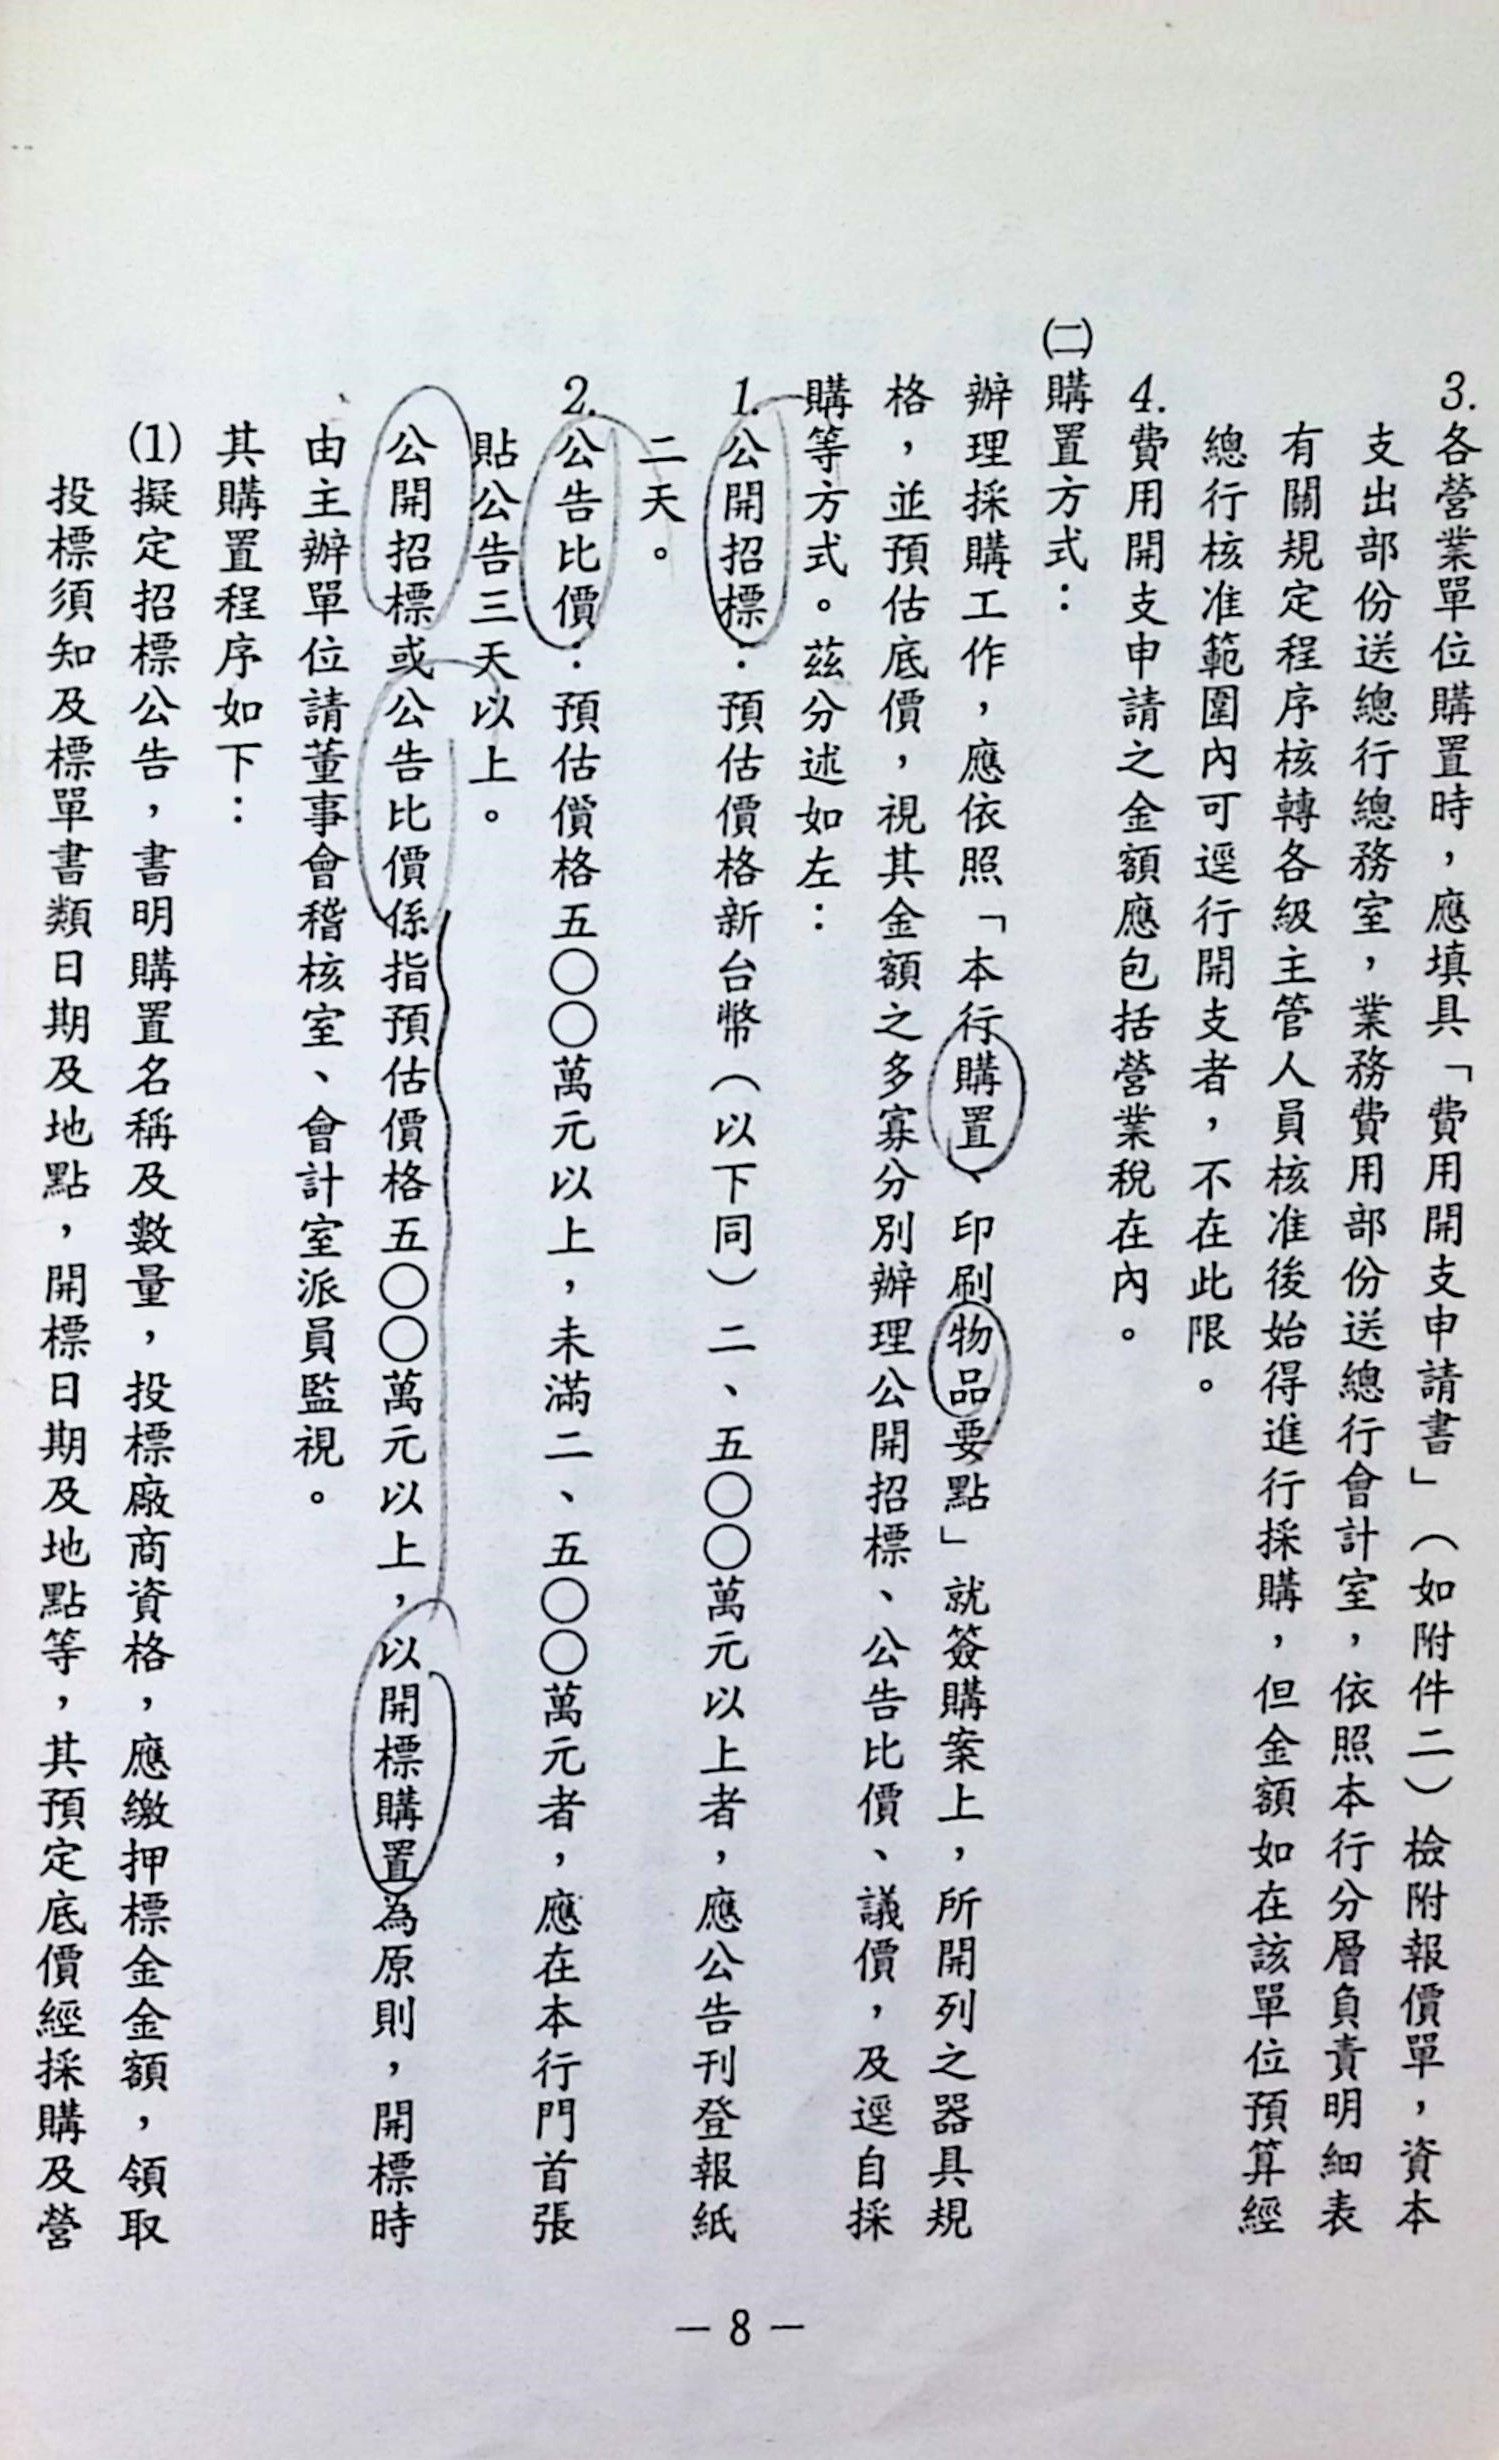 3.各營業單位購置時，應填具「費用開支申請書」（如附件二）檢附報價單，資本
支出部份送總行總務室，業務費用部份送總行會計室，依照本行分層負責明細表
有關規定程序核轉各級主管人員核准後始得進行採購，但金額如在該單位預算經
總行核准範圍內可逕行開支者，不在此限。
4.費用開支申請之金額應包括營業稅在內。
㈡購置方式：
辦理採購工作，應依照「本行購置、印刷物品要點」就簽購案上，所開列之器具規
格，並預估底價，視其金額之多寡分別辦理公開招標、公告比價、議價，及逕自採
購等方式。茲分述如左：
1.公開招標：預估價格新台幣（以下同）二、五〇〇萬元以上者，應公告刊登報紙
二天。
2.公告比價：預估價格五〇〇萬元以上，未滿二、五〇〇萬元者，應在本行門首張
貼公告三天以上。
公開招標或公告比價係指預估價格五〇〇萬元以上，以開標購置為原則，開標時
由主辦單位請董事會稽核室、會計室派員監視。
其購置程序如下：
⑴擬定招標公告，書明購置名稱及數量，投標廠商資格，應繳押標金金額，領取
投標須知及標單書類日期及地點，開標日期及地點等，其預定底價經採購及營
－8－